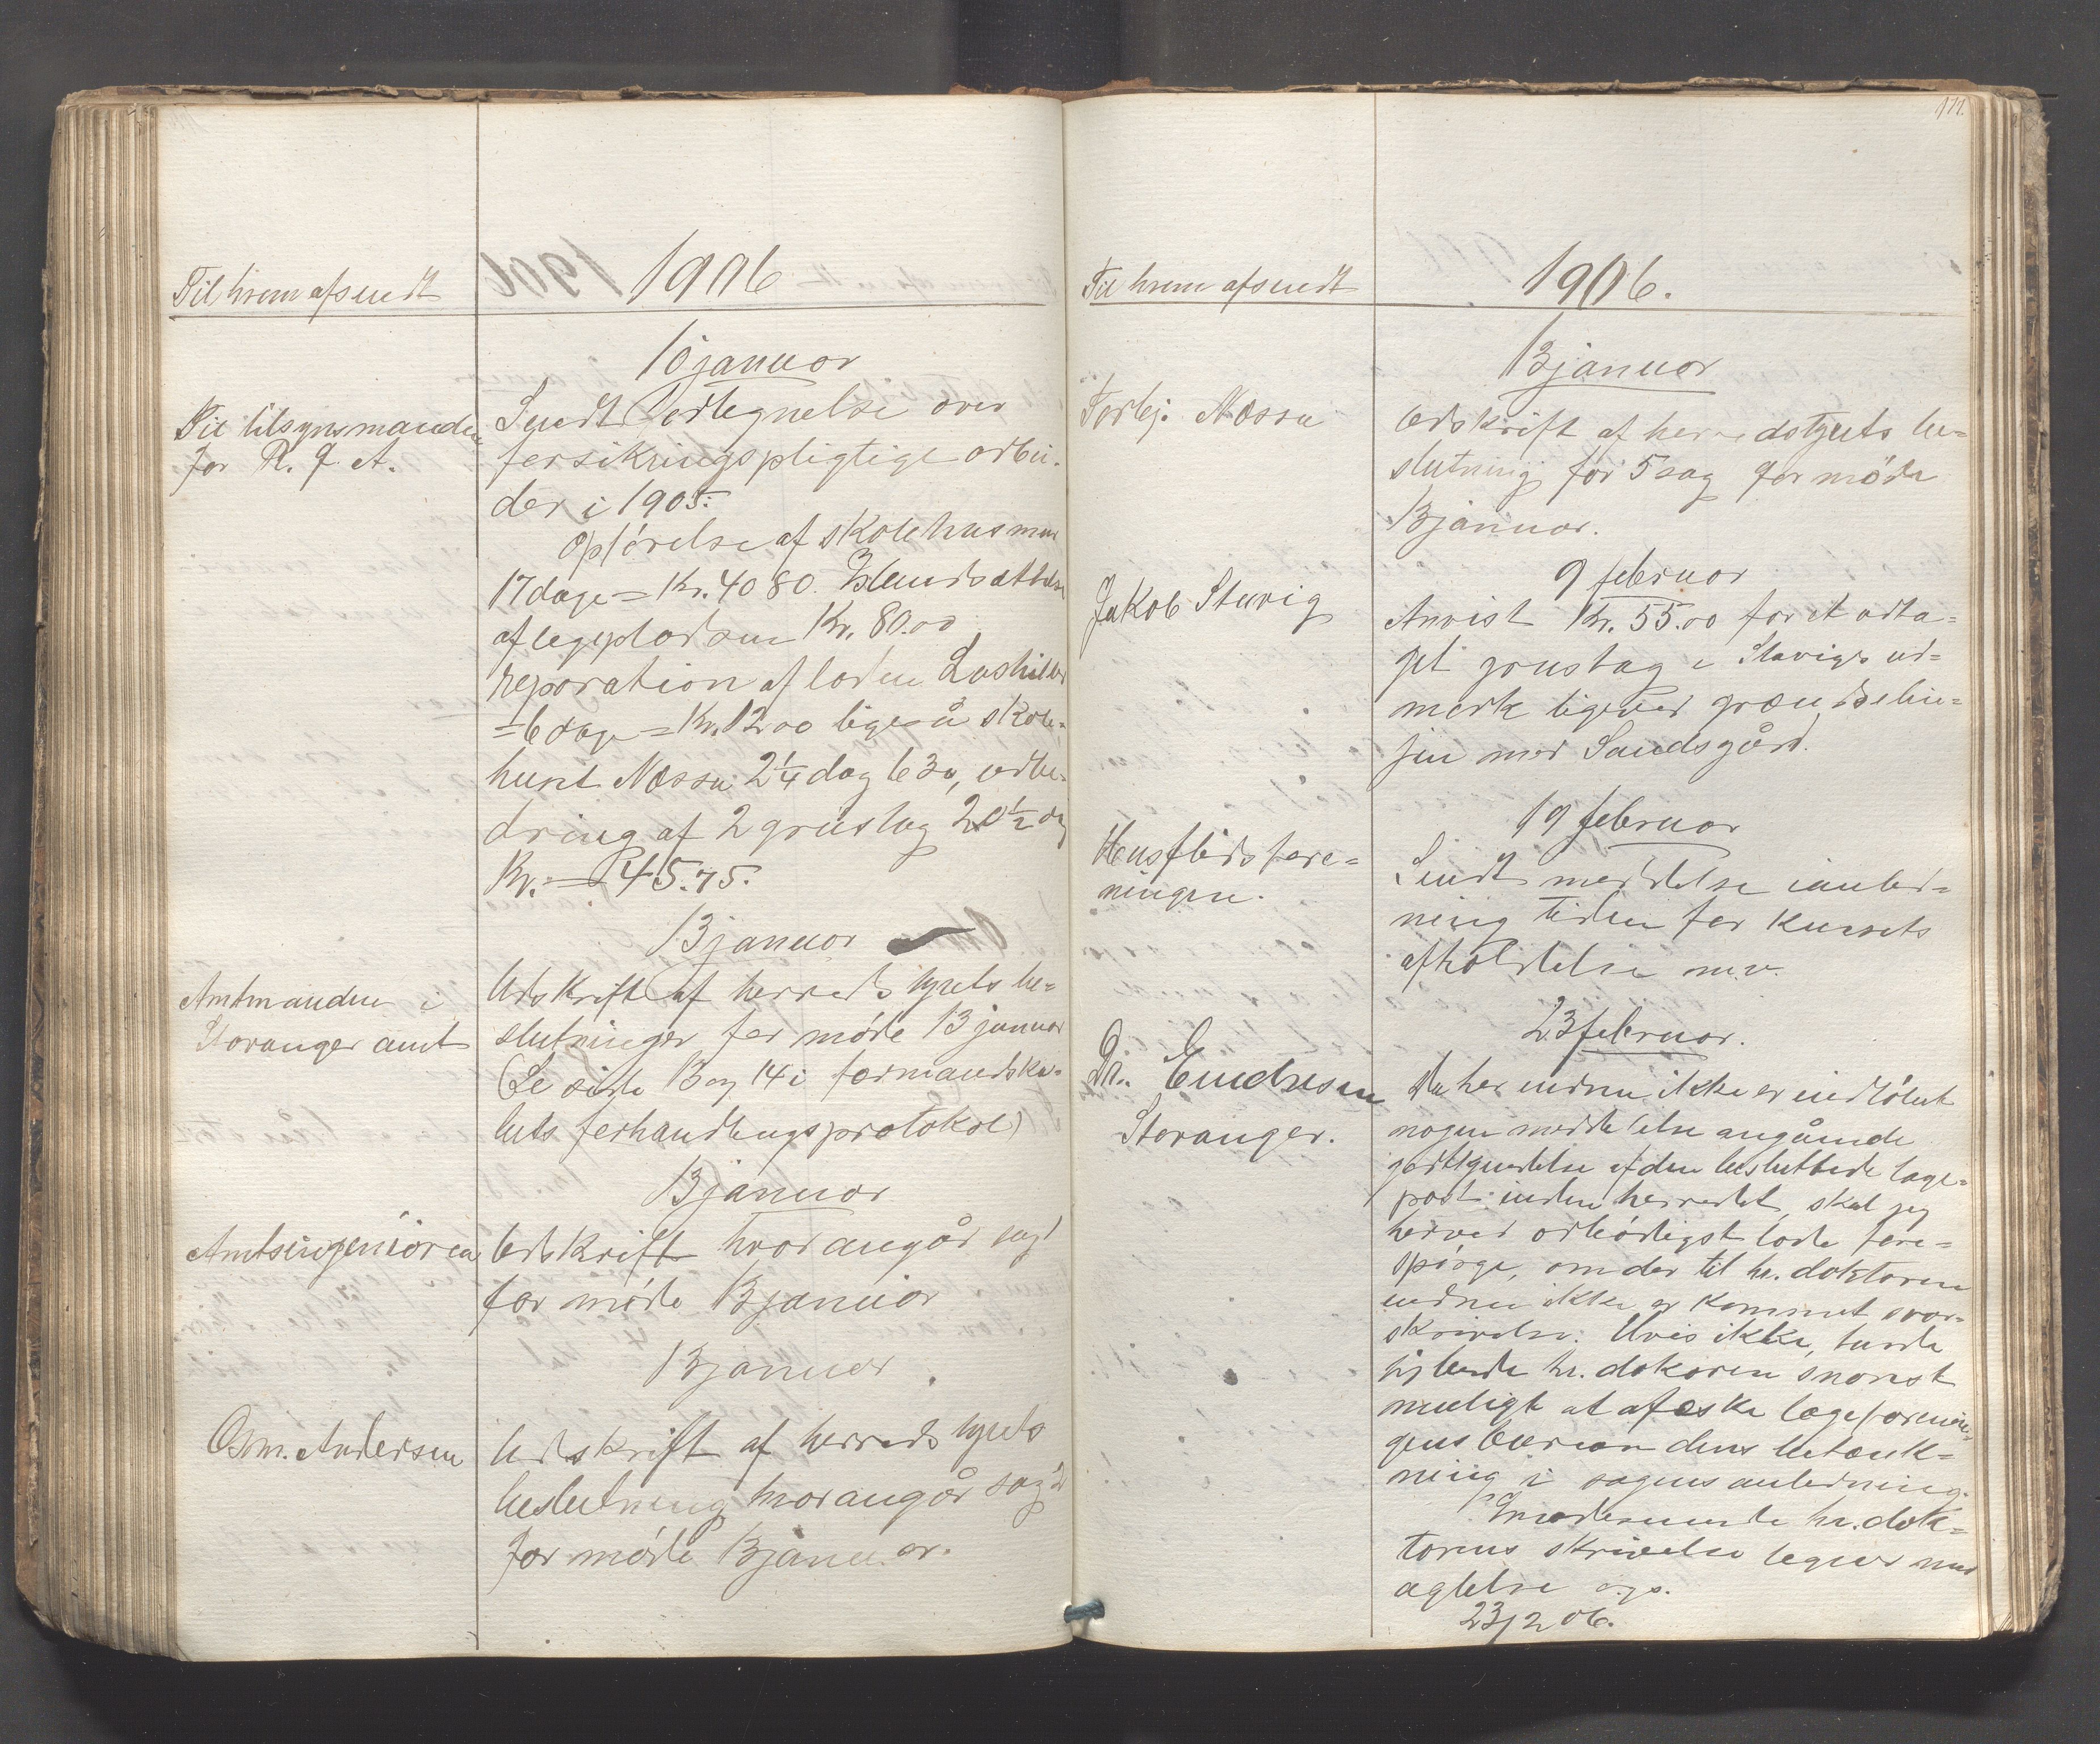 Til hvem afsendt
1906
10 januar
Til tilsynsmanden
for R. F. A.
Sendt Fortegnelse over
forsikringspligtige arbei-
der i 1905.
Opførelse af skolehus men
17 dage = Kr. 40 80. Istandsættelse
af legepladsen Kr. 80.00
reparation af laden
= 6 dage = Kr. 12.00 ligeså skole-
huset Næssa 2 1/4 dag 6 30, udbe-
dring af 2 grustag 20 1/2 dag
Kr. = 45.75.
13 januar
Amtmanden i
Stavanger amt
Udskrift af herredstyrets be-
slutninger for møde 13 januar
(Se side 13 og 14 i formandska-
bets forhandlingsprotokol)
13 januar
Amtsingeniøren
Udskrift hvorangår sag 1
for møde 13 januar
13 januar
Osm. Andersen
Udskrift af herredstyrets
beslutning hvorangår sag
for møde 13 januar.
171.
Til hvem afsendt
1906.
13 januar
Torbj. Næssa
Udskrift af herredstyrets be-
slutning for 5 sag for møde
13 januar.
9 februar
Jakob Stavig
Anvist Kr. 55.00 for et udta-
get grustag i Stavigs ud-
mark ligeved grændselin-
jen med Sandsgård.
19 februar
Husflidsfore-
ningen.
Sendt meddelse ianled-
ning tiden for kursets
afholdelse m.v.
23 februar.
Dr. Endresen
Stavanger.
Da her endnu ikke er indløbet
nogen meddelelse angående
godkjendelse af den besluttede læge-
post inden herredet, skal jeg
herved ærbødigst lade fore-
spørge, om der til hr. doktoren
endnu ikke er kommet svar-
skrivelse. Hvis ikke, turde
hr. dokoren snarest
muligt at afæske lægeforenin-
gens dens betænk-
ning i sagens anledning.
Imødeseende hr. dok-
torens skrivelse tegner med
agtelse
23/2 06.